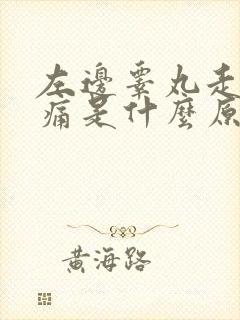 左邊睪丸走
痛是什麼原
黃海路